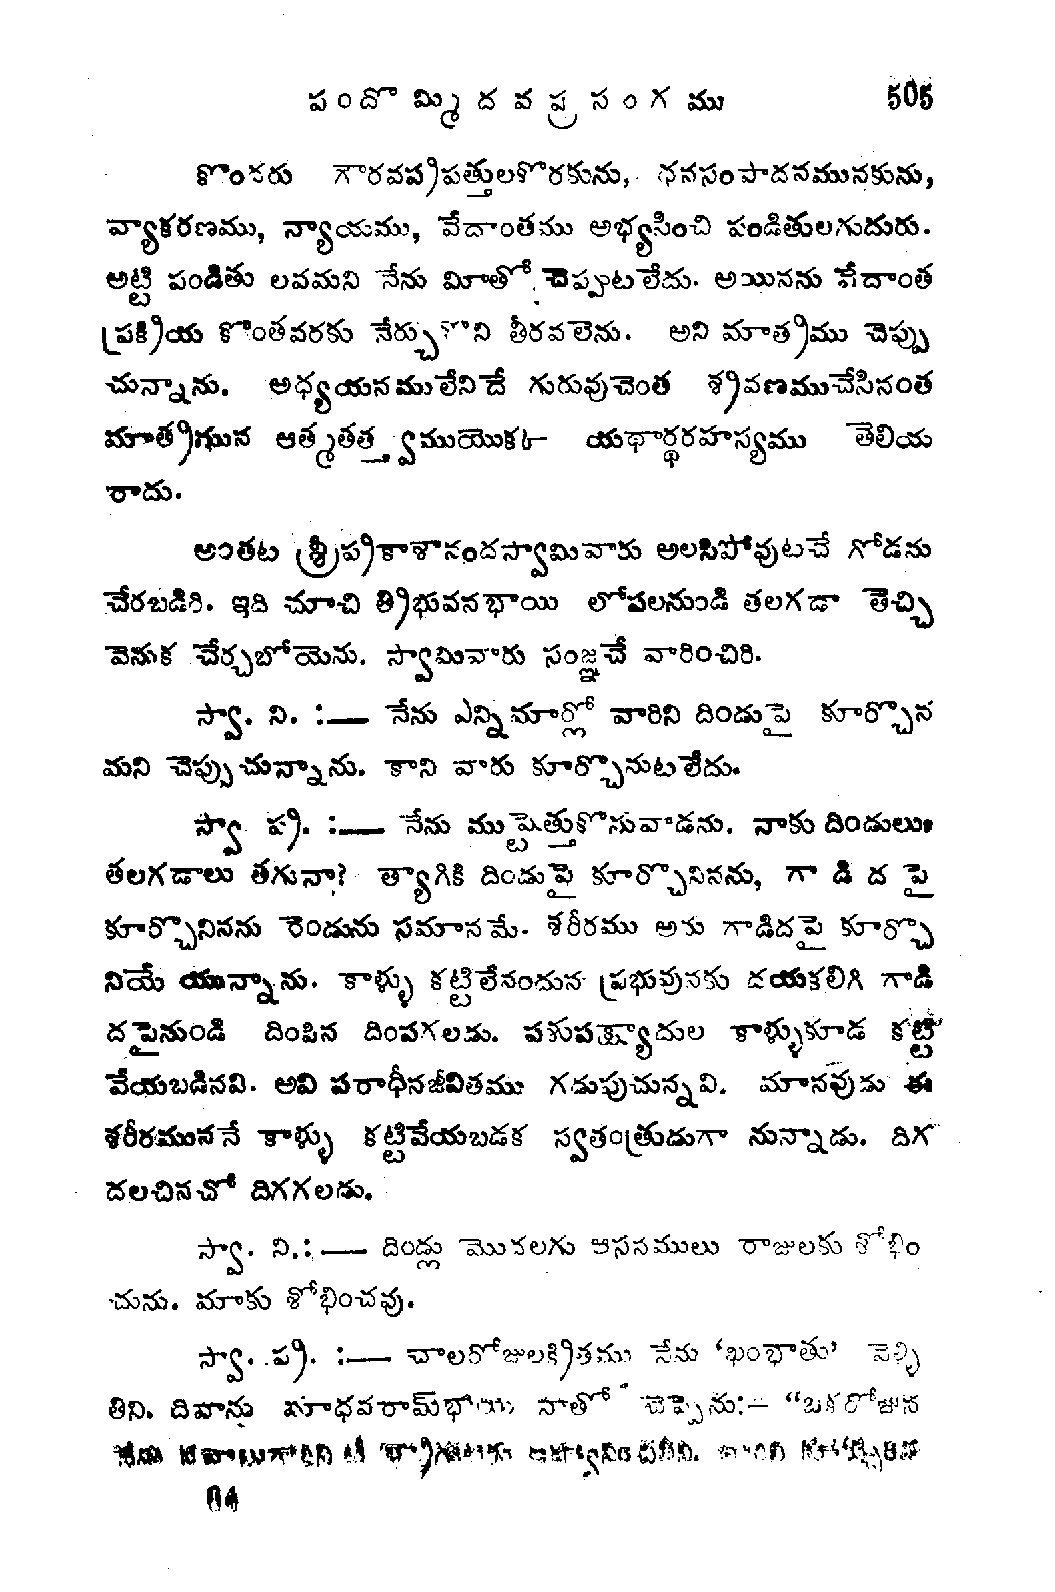 పందొమ్మిదవప్రసంగము 505
కొందరు గౌరవప్రపత్తులకొరకును, ధనసంపాదనమునకును,
వ్యాకరణము, న్యాయము, వేదాంతము అభ్యసించి పండితులగుదురు.
అట్టి పండితు లవమని నేను మీతో చెప్పుటలేదు. అయినను వేదాంత
ప్రక్రియ కొంతవరకు నేర్చుకొని తీరవలెను. అని మాత్రము చెప్పు
చున్నాను. అధ్యయనములేనిదే గురువుచెంత శ్రవణముచేసినంత
మాత్రమున ఆత్మతత్త్వముయొక్క యథార్థరహస్యము తెలియ
రాదు.
అంతట శ్రీప్రకాశానందస్వామివారు అలసిపోవుటచే గోడను
చేరబడిరి. ఇది చూచి త్రిభువనభాయి లోపలనుండి తలగడా తెచ్చి
వెనుక చేర్చబోయెను. స్వామివారు సంజ్ఞచే వారించిరి.
స్వా. ని. :— నేను ఎన్నిమార్లో వారిని దిండుపై కూర్చొన
మని చెప్పుచున్నాను. కాని వారు కూర్చొనుటలేదు.
స్వా ప్ర. :— నేను ముష్టెత్తుకొనువాడను. నాకు దిండులు
తలగడాలు తగునా? త్యాగికి దిండుపై కూర్చొనినను, గాడిదపై
కూర్చొనినను రెండును సమానమే. శరీరము అను గాడిదపై కూర్చొ
నియే యున్నాను. కాళ్ళు కట్టిలేనందున ప్రభువునకు దయకలిగి గాడి
దపైనుండి దింపిన దింపగలడు. పశుపక్ష్యాదుల కాళ్ళుకూడ కట్టి
వేయబడినవి. అవి పరాధీనజీవితము గడుపుచున్నవి. మానవుడు ఈ
శరీరముననే కాళ్ళు కట్టివేయబడక స్వతంత్రుడుగా నున్నాడు. దిగ
దలచినచో దిగగలడు.
స్వా. ని. :— దిండ్లు మొదలగు ఆసనములు రాజులకు శోభిం
చును. మాకు శోభించవు.
స్వా. ప్ర. :— చాలరోజులక్రితము నేను ‘ఖంభాతు’ వెళ్ళి
తిని. దివాను మాధవరామ్‌భాయి నాతో చెప్పెను:— “ఒకరోజున
64